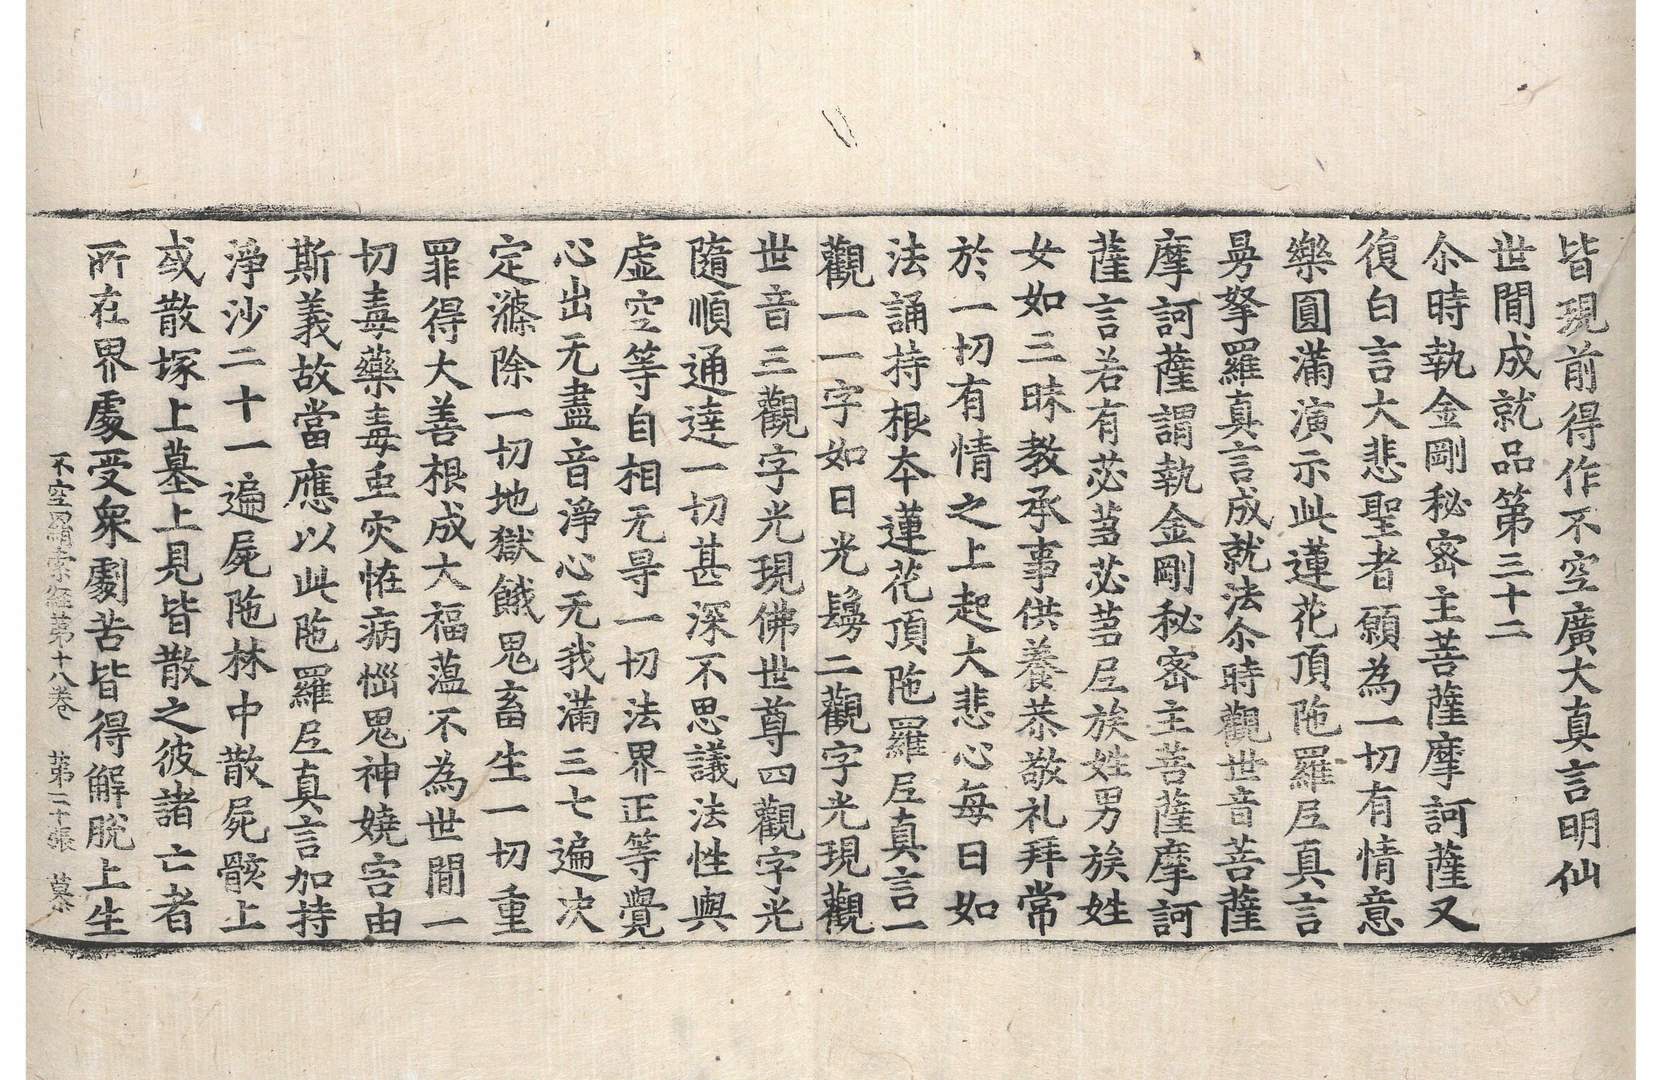 皆現前得作不空廣大真言明仙
世間成就品第三十二
尒時執金剛秘密主菩薩摩訶薩又
復白言大悲聖者願為一切有情意
樂圓滿演示此蓮花頂陁羅𡰱真言
曼拏羅真言成就法尒時觀世音菩薩
摩訶薩謂執金剛秘密主菩薩摩訶
薩言若有苾芻苾芻𡰱族姓男族姓
女如三昧教承事供養恭敬礼拜常
於一切有情之上起大悲心每日如
法誦持根本蓮花頂陁羅𡰱真言一
觀一一字如日光鬘二觀字光現觀
世音三觀字光現佛世尊四觀字光
隨順通達一切甚深不思議法性與
虛空等自相无㝵一切法界正等覺
心出无盡音淨心无我滿三七遍决
定滌除一切地獄餓鬼畜生一切重
罪得大善根成大福蘊不為世間一
切毒藥毒虫灾恠病惱鬼神嬈害由
斯義故當應以此陁羅𡰱真言加持
淨沙二十一遍屍陁林中散屍骸上
或散塚上墓上見皆散之彼諸亡者
所在界處受衆劇苦皆得解脫上生
不空羂索経第十八卷 第二十張 慕